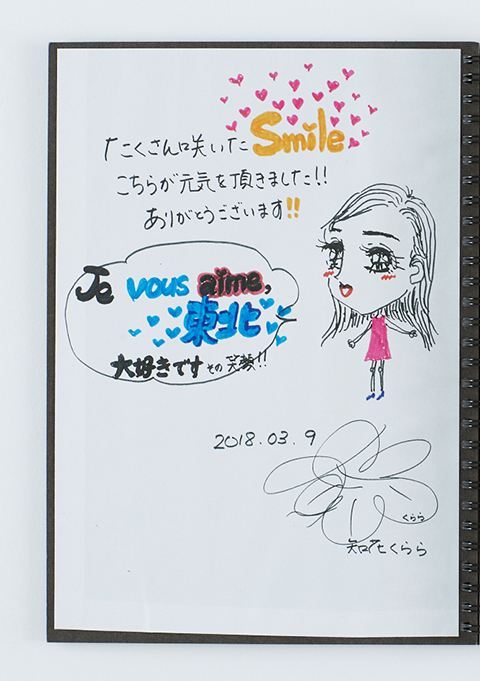 たくさん咲いたSmile
こちらが元気を頂きました!!
ありがとうございます!!
Je vous aime,
東北
大好きです その笑顔!!
2018.03.9
くらら
知花くらら